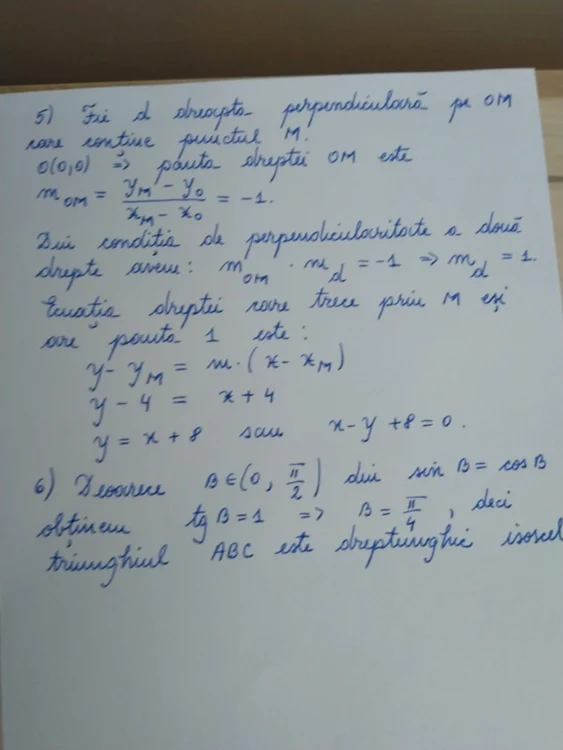 5) Fie d dreapta perpendiculară pe OM
care conține punctul M.
O(0,0) => panta dreptei OM este
m_OM = (y_M - y_O) / (x_M - x_O) = -1.
Din condiția de perpendicularitate a două
drepte avem: m_OM · m_d = -1 => m_d = 1.
Ecuația dreptei care trece prin M și
are panta 1 este:
y - y_M = m·(x - x_M)
y - 4 = x + 4
y = x + 8 sau x - y + 8 = 0.
6) Deoarece B∈(0, π/2) din sin B = cos B
obținem tg B = 1 => B = π/4, deci
triunghiul ABC este dreptunghic isoscel